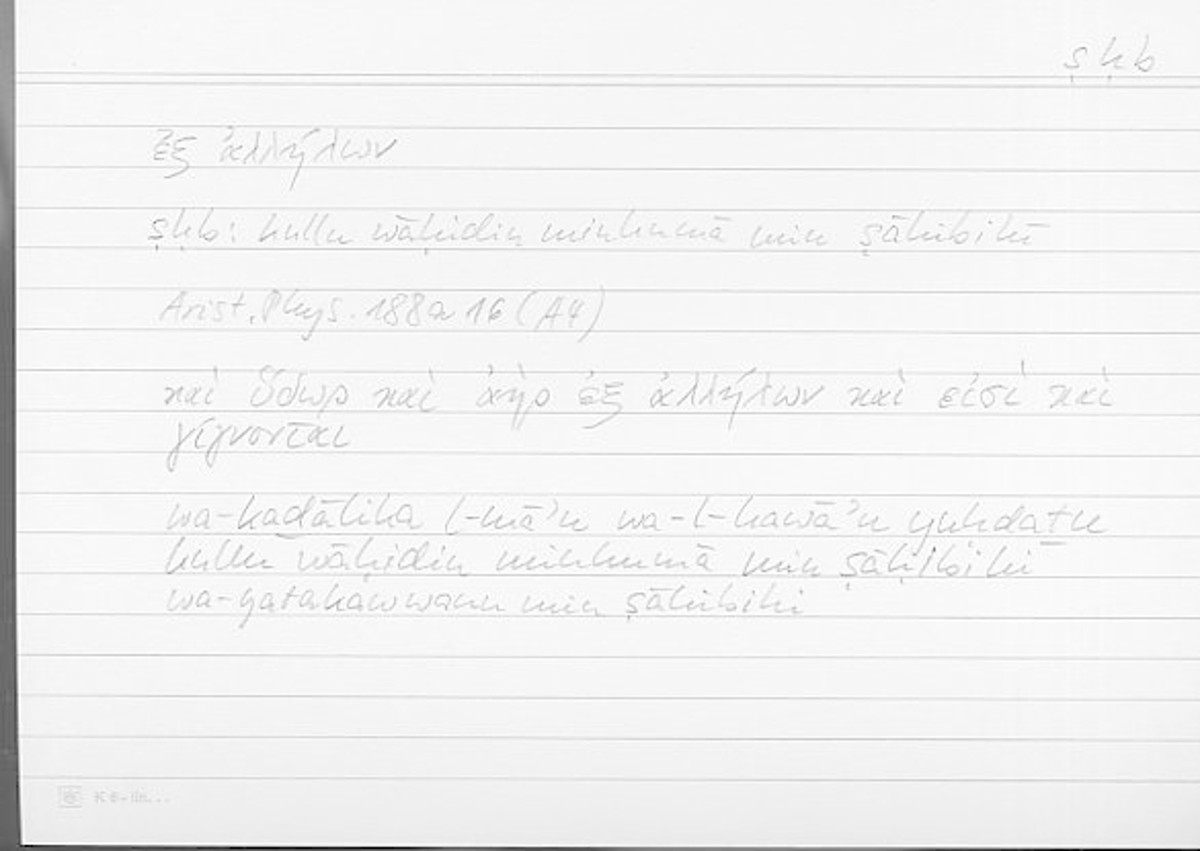 ṣḥb
ἐξ ἀλλήλων
ṣḥb: kullu wāḥidin minhumā min ṣāḥibihī
Arist. Phys. 188a 16 (A4)
καὶ ὕδωρ καὶ ἀὴρ ἐξ ἀλλήλων καὶ εἰσὶ καὶ
γίγνονται
wa-kaḏālika l-mā’u wa-l-hawā’u yuḥdaṯu
kullu wāḥidin minhumā min ṣāḥibihī
wa-yatakawwanu min ṣāḥibihi